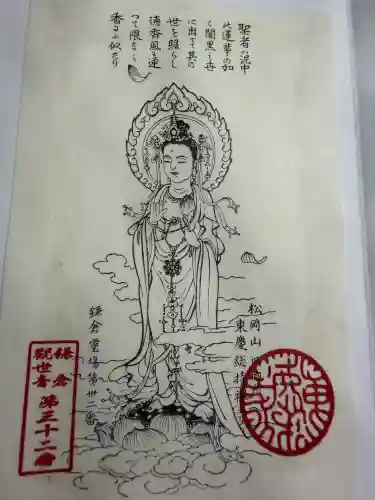 聖者の泥中
此蓮華の如
く闇黒の世
に出でて其の
世を照らし
徳香風に連
つて限なく
香るに似たり
松岡山
東慶総持禅寺
鎌倉霊場第卅二番
鎌倉
観世音
第三十二番